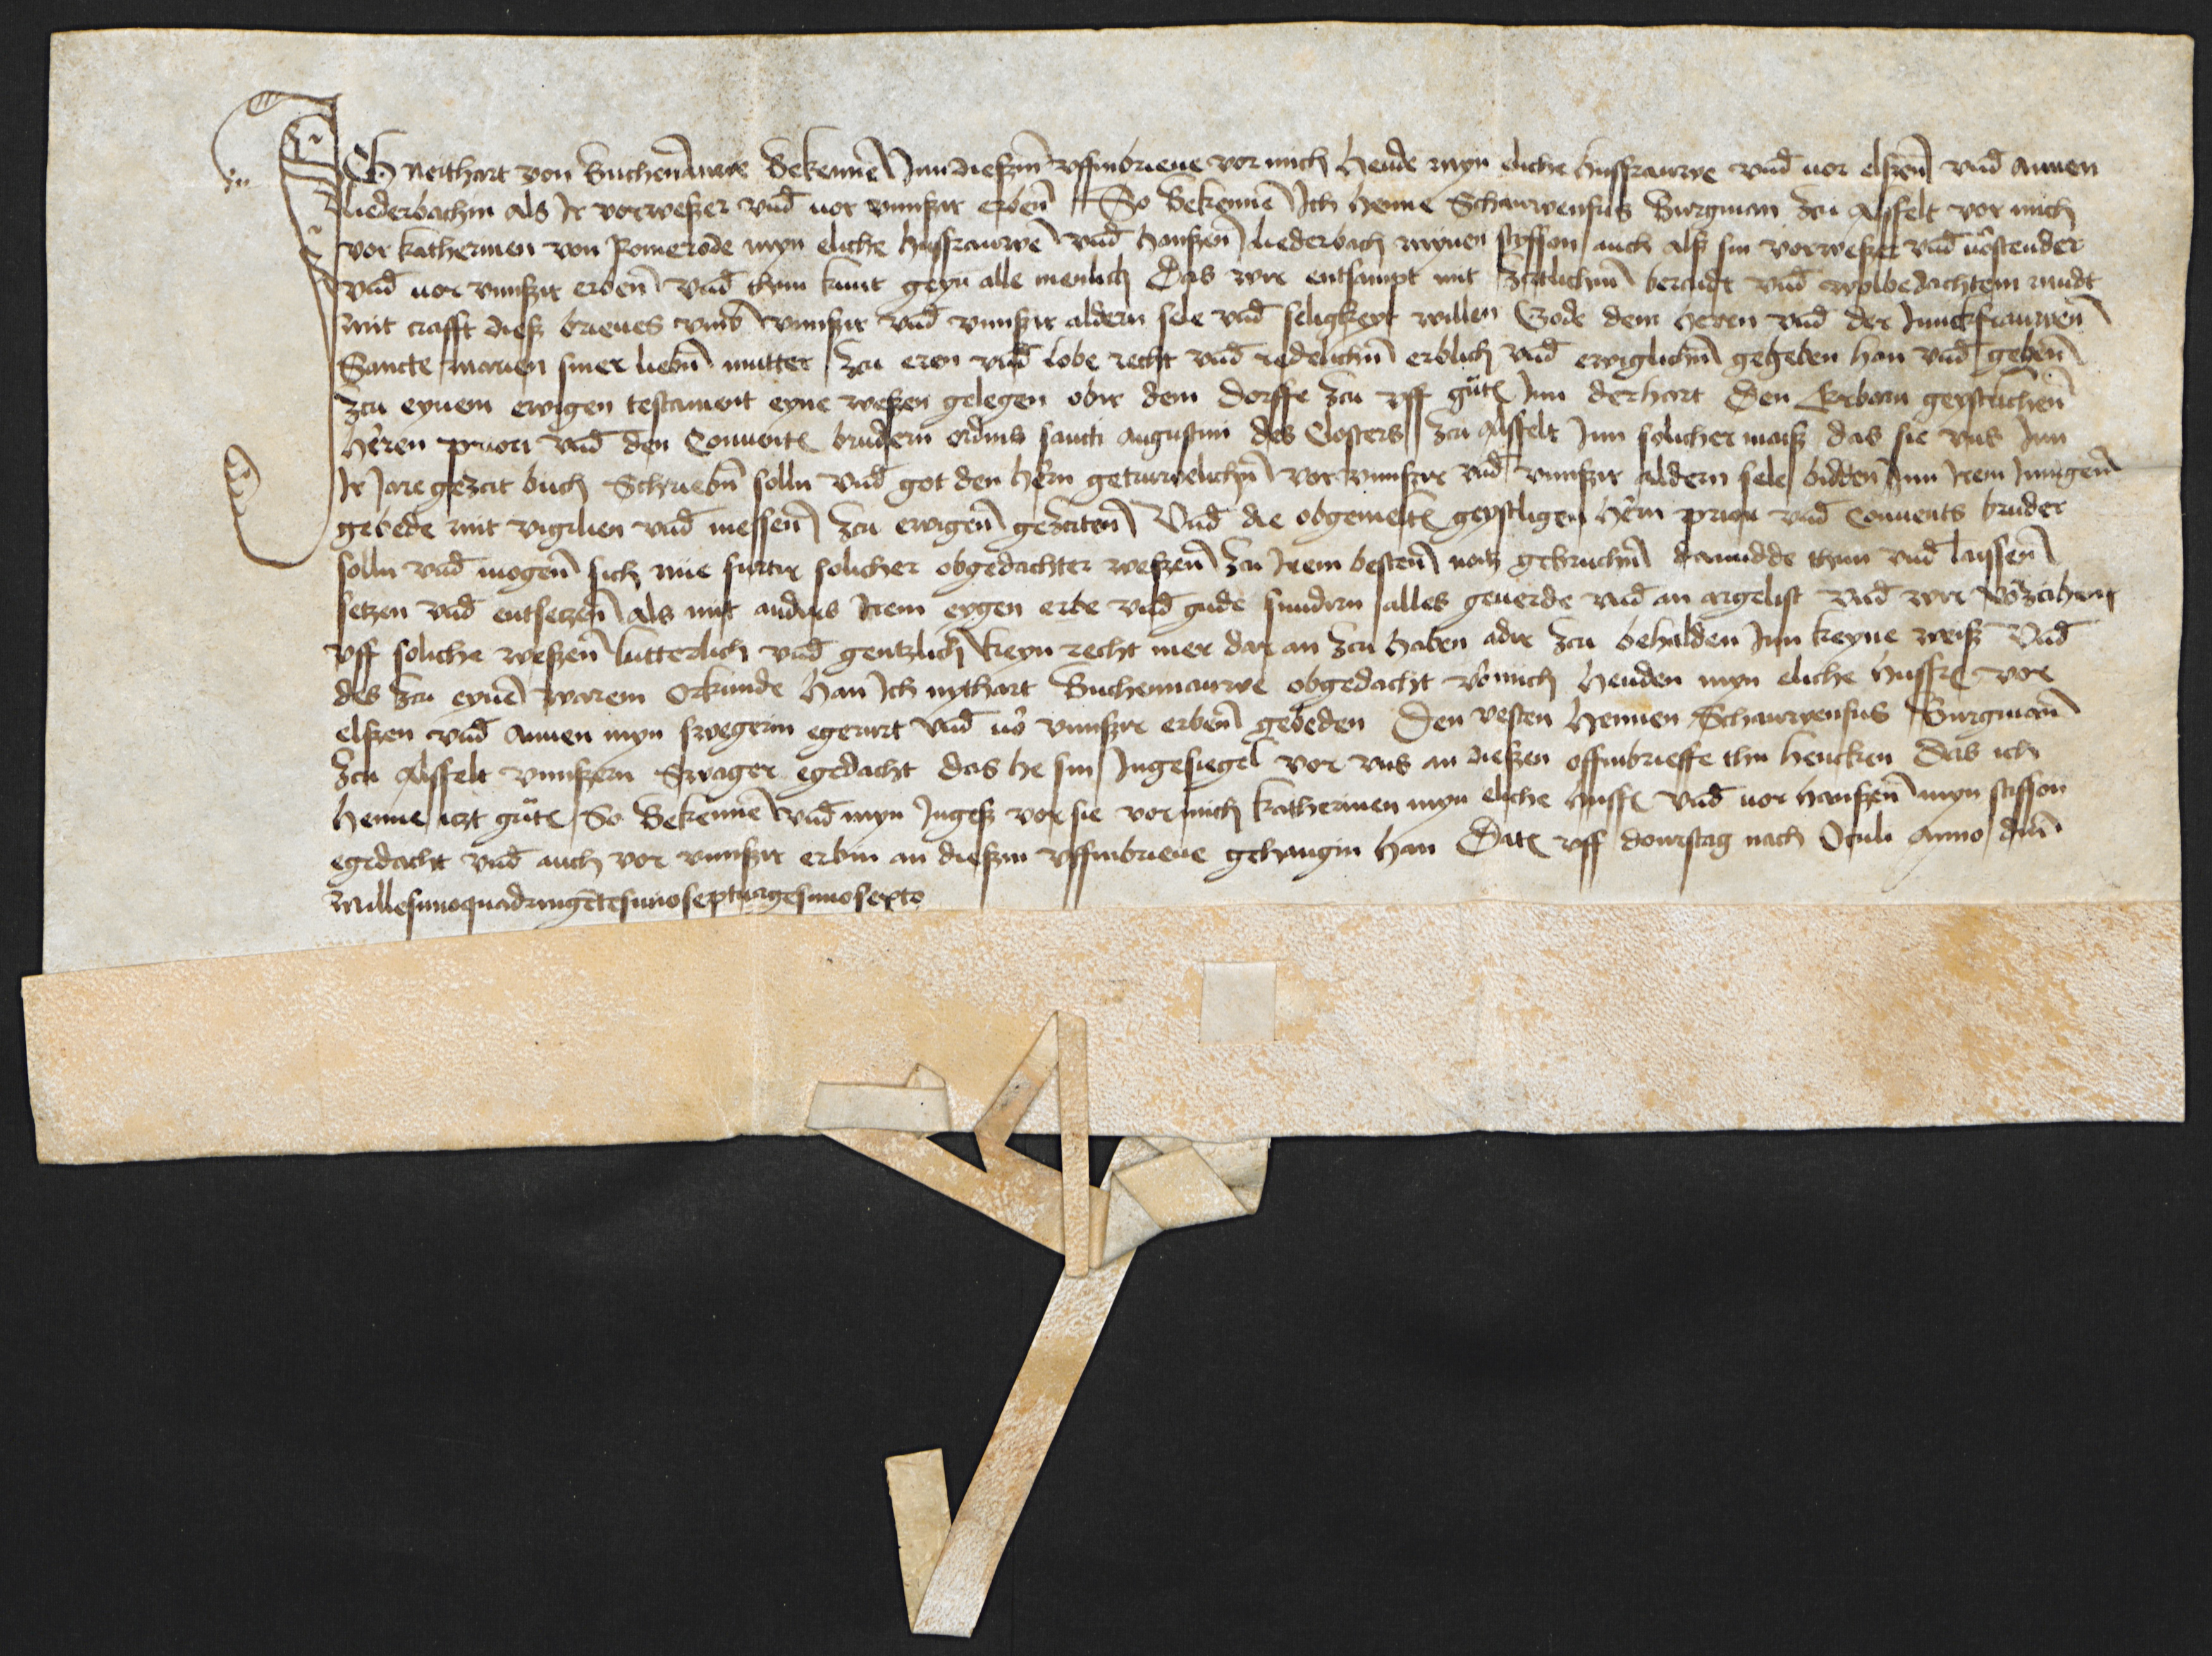 Ich neithart von Buchenauwe Bekenne Inn dieszm uffinbrieue vor mich Hende myn eliche hussfrauwe vnd uor elszen vnd annen
liederbachin als Ir vorweszer vnd uor vnnszer erben So Bekenne Ich Henne Schauwenfus Burgman zcu Alsfelt vor mich
vor katherinen von Romerode myn eliche hussfrauwe vnd hanszen liederbach mynen styffson auch alsz sin vorweszer vnd uorstender
vnd uor vnnszer erben vnd thun kunt geyn alle menlich Das wir entsampt mit zcitlichem beradt vnd wolbedachtem mudt
mit crafft diesz brieues vmb vnnszer vnd vnnszer aldern sele vnd seligkeyt willen Gode dem heren vnd der Junckfrauwen
Sancte marien siner liebn mutter zcu eren vnd lobe recht vnd redelichn erblich vnd ewiglichn gegeben han vnd geben
zcu eynem ewigen testament eyne weszen gelegen obir dem dorffe zcu uff Inn der hart Den Erbarn geystlichen
heren priori vnd den Conuents brudern ordinis sancti augustini des Closters zcu Alsfelt Inn solicher maisz das sie vns Inn
Ir Jaregezcit buch Schriebn solln vnd got den hern getruwelichn vor vnnszer vnd vnnszer aldern sele bidden Inn Irem Innigen
gebede mit vigilien vnd messen zcu ewigen gezciten Vnd die obgemelten geystligen hern prior vnd Conuents bruder
solln vnd mogen sich nue furtir solicher obgedachter weszen zcu Irem besten notz gebruchn damidde thun vnd laissen
setzen vnd entsetzen als mit andirs Irem eygen erbe vnd gude sundirn alles geuerde vnd an argelist vnd wir vorzcihen
uff soliche weszen lutterlich vnd gentzlich keyn recht mer dar an zcu haben adir zcu behalden Inn keyne weisz Vnd
des zcu eyne warem Orkunde han Ich nythart Buchennauwe obgedacht vor mich Henden myn eliche hussfr vor
elszen vnd annen myn swegerin egerurt vnd uor vnnszer erben gebeden Den vesten Hennen Schauwenfus Burgman
zcu Alsfelt vnnszern Swager egedacht das he sin Ingesiegel vor vns an dieszen offinbrieffe thu hencken Das ich
Henne itzt So Bekenne vnd myn Ingesz vor sie vor mich katherinen myn eliche hussf vnd uor hanszen myn stiffson
egedacht vnd auch vor vnnszer erbin an dieszm uffinbrieue gehangin han Dat uff donrstag nach Oculi Anno dm
Millesimoquadringetesimoseptuagesimosexto